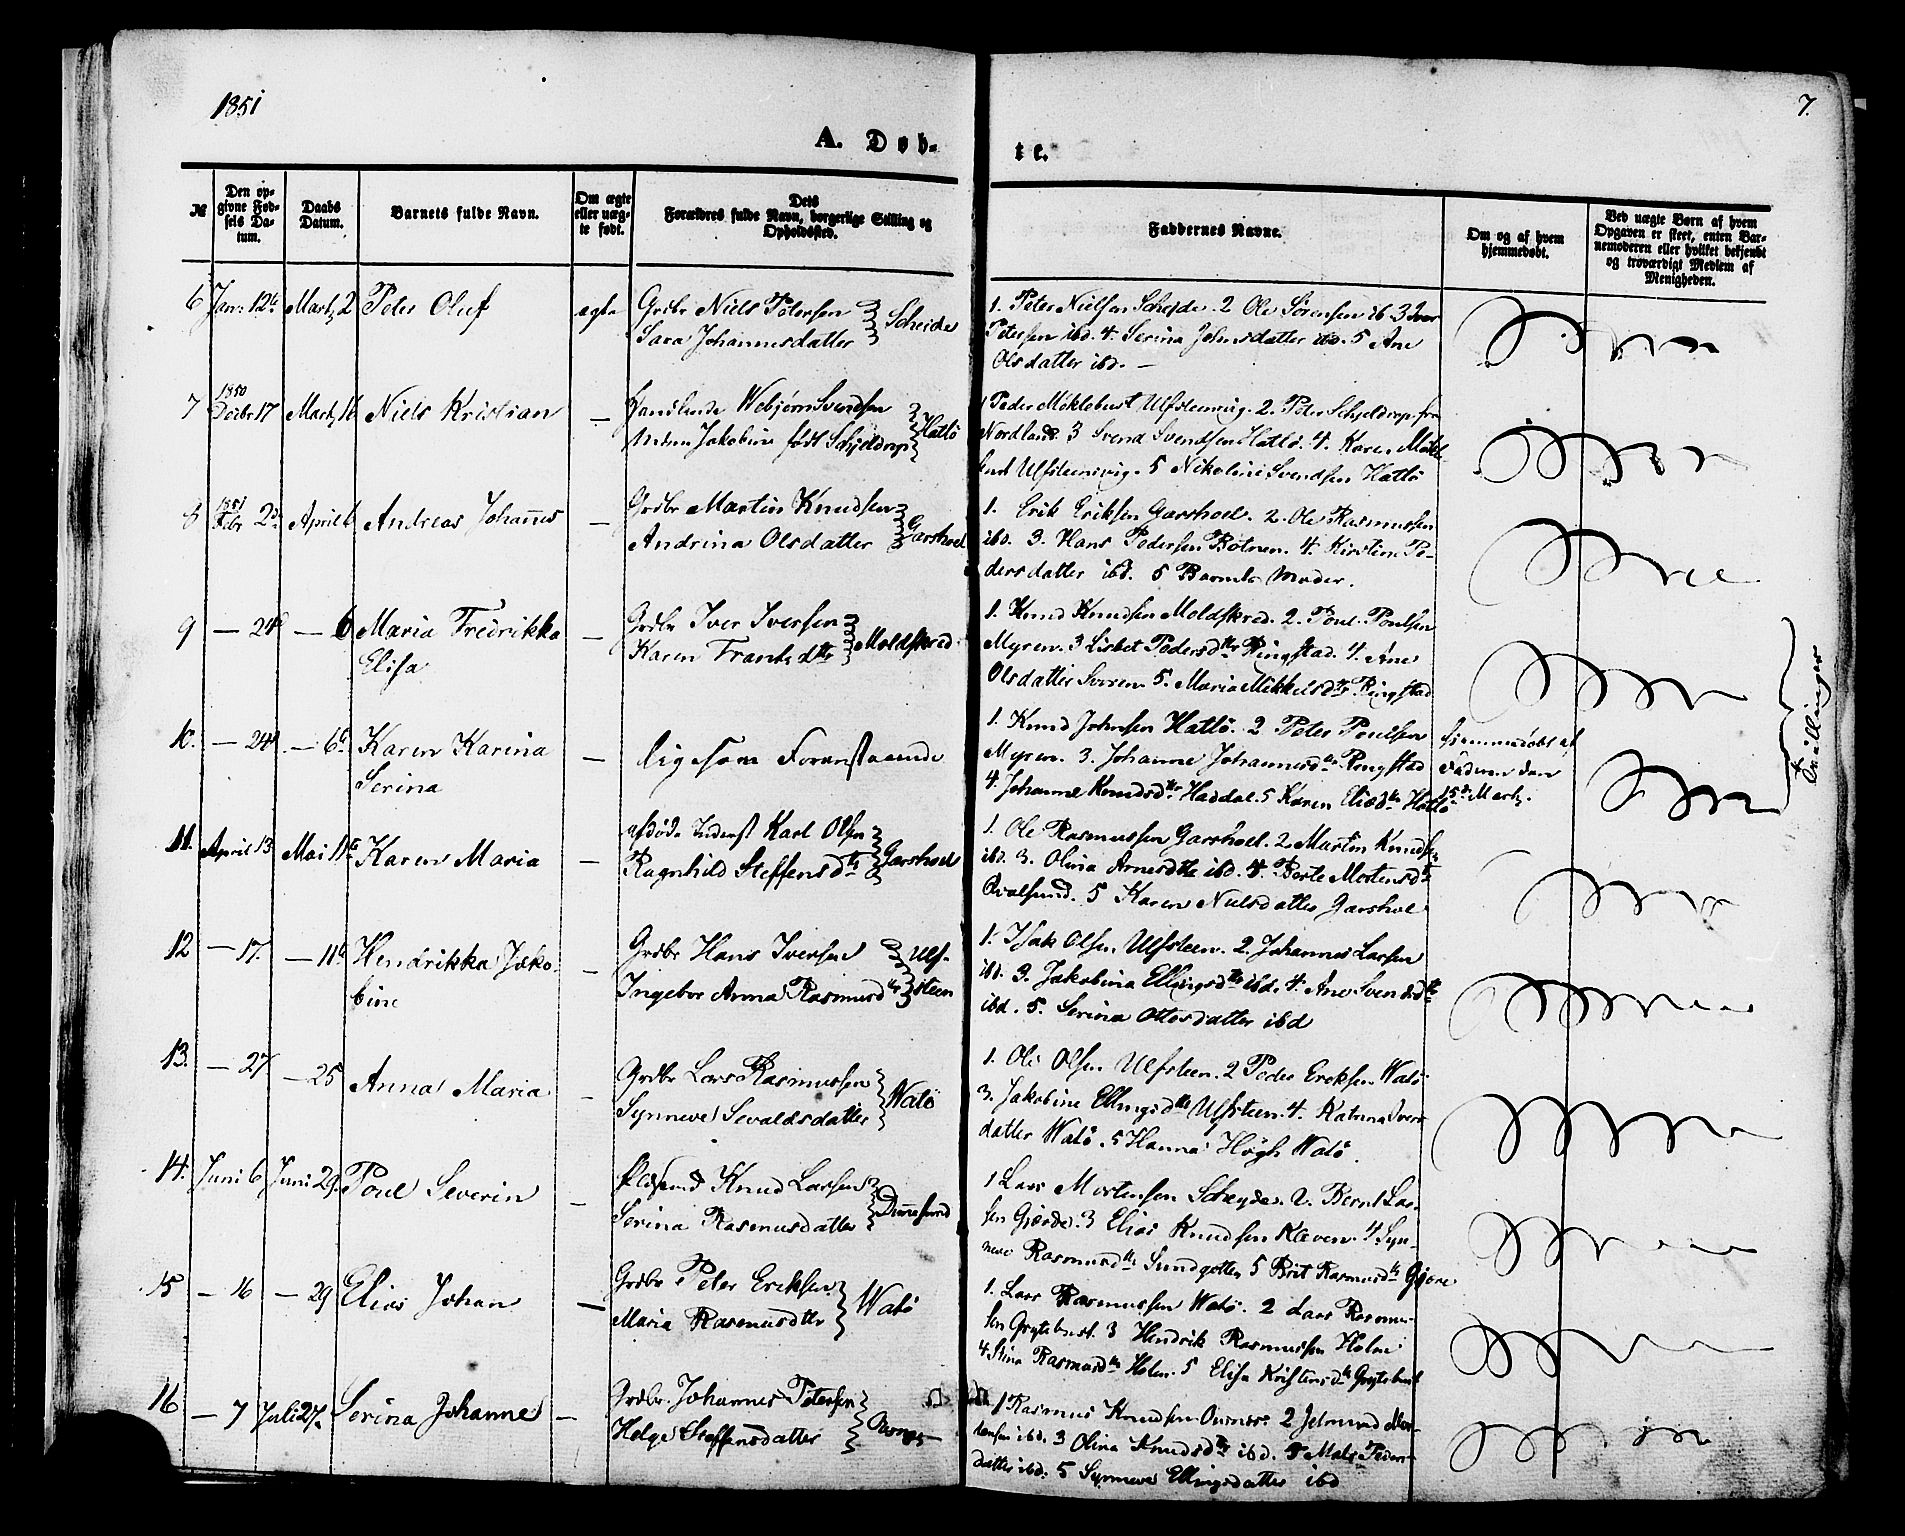 1851
7.
A. Døb-
te.
№
Den op-
givne Fød-
sels Da-
tum.
Daabs
Datum.
Barnets fulde Navn.
Om ægte
eller uæg-
te født.
Dets
Forældres fulde Navn, borgerlige Stilling og
Opholdssted.
Faddernes Navne.
Om og af hvem
hjemmedøbt.
Ved uægte Børn af hvem
Opgaven er skeet, enten Bar-
nemoderen eller hvilket bekjendt
og troværdigt Medlem af
Menigheden.
6 Jan: 12te Marts 2 Peter Oluf ægte Grdbr Niels Petersen
Sara Johannesdatter Scheide
1. Peter Nielsen Schejde. 2 Ole Sörensen ib 3 Iver
Petersen ibd. 4. Serina Johnsdatter ibd. 5 Ane
Olsdatter ibd. —
7 1850
Decbr 17 Marts 16 Niels Kristian — Handlende Webjørn Svendsen
Jakobine født Schjeldrop Hatlö
1 Peder Möklebust Ulfsteenvig. 2. Peter Schjeldrop fra
Nordland. 3 Svend Svendsen Hatlö. 4. Karen Mökle-
bust Ulfsteensvig. 5 Nikoline Svendsen Hatlö
8 1851
Febr 2den April 6 Andreas Johannes — Grdbr Martin Knudsen
Andrina Olsdatter Garshoel
1. Erik Eriksen Garshoel. 2. Ole Rasmussen
ibd. 3. Hans Pedersen Botnen. 4. Kirstine Pe-
dersdatter ibd. 5 Barnets Moder.
9 — 24de — 6 Maria Fredrikka
Elisa — Grdbr Iver Iversen
Karen Frantsdtr Moldskred
1. Knud Knudsen Moldskred. 2. Poul Poulsen
Myren. 3 Lisbet Pedersdtr Ringstad. 4. Ane
Olsdatter 5. Maria Mikkelsdtr Ringstad
10. — 24de — 6te Karen Karina
Serina — ligesom Foranstaaende
1. Knud Johnsen Hatlö. 2 Peter Poulsen
Myren. 3. Johanne Johannesdtr Ringstad
4. Johanne Knudsdtr Haddal. 5 Karen Eliasdtr Hatlö
hjemmedøbt af
Faderen den
15de Marts.
Tvillinger
11. April 13 Mai 11te Karen Maria — afdøde Inderst Karl Olsen
Ragnhild Steffensdtr Garshoel
1. Ole Rasmussen Garshoel. 2 Martin Knudsen
ibd. 3. Olina Arnesdtr ibd. 4. Berte Mortensdtr
Qvalsund. 5 Karen Nielsdatter Garshoel
12 — 17. — 11te Hendrikka Jako-
bine — Grdbr Hans Iversen
Ingebor Anna Rasmusdtr Ulf-
steen
1. Isak Olsen Ulfsteen. 2. Johannes Larsen
ibd. 3. Jakobina Ellingsdtr ibd. 4. Ane Svendsdtr
ibd. 5. Serina Ottesdatter ibd
13. — 27 — 25 Anna Maria — Grdbr Lars Rasmussen
Synneve Sevaldsdatter Watö
1. Ole Olsen Ulfsteen. 2 Peder Eriksen Watö
3. Jakobine Ellingsdtr Ulfsteen. 4. Katrina Ivers-
datter Watö. 5 Hanna Högh Watö.
14. Juni 6 Juni 29. Poul Severin — Pladsmd Knud Larsen
Serina Rasmusdatter Dimesund
1 Lars Mortensen 2. Bernt Lar-
sen Gjerde. 3 Elias Knudsen Kleven. 4 Syn-
neve Rasmusdtr Sundgotten 5 Brit Rasmusdtr
15 — 16 — 29 Elias Johan — Grdbr Peter Eriksen
Maria Rasmusdtr Watö
1. Lars Rasmussen Watö. 2 Lars Rasmus-
sen Grytebust. 3 Hendrik Rasmussen Holm
4 Stina Rasmusdtr Holm. 5 Elisa Kristensdtr Grytebust
16 — 7 Juli 27. Serina Johanne — Grdbr Johannes Petersen
Helge Steffensdatter
1 Rasmus Knudsen 2 Mor-
tensen ibd. 3 Olina Knudsdtr ibd. 4 Peders-
datter ibd. 5 Synneve Ellingsdatter ibd